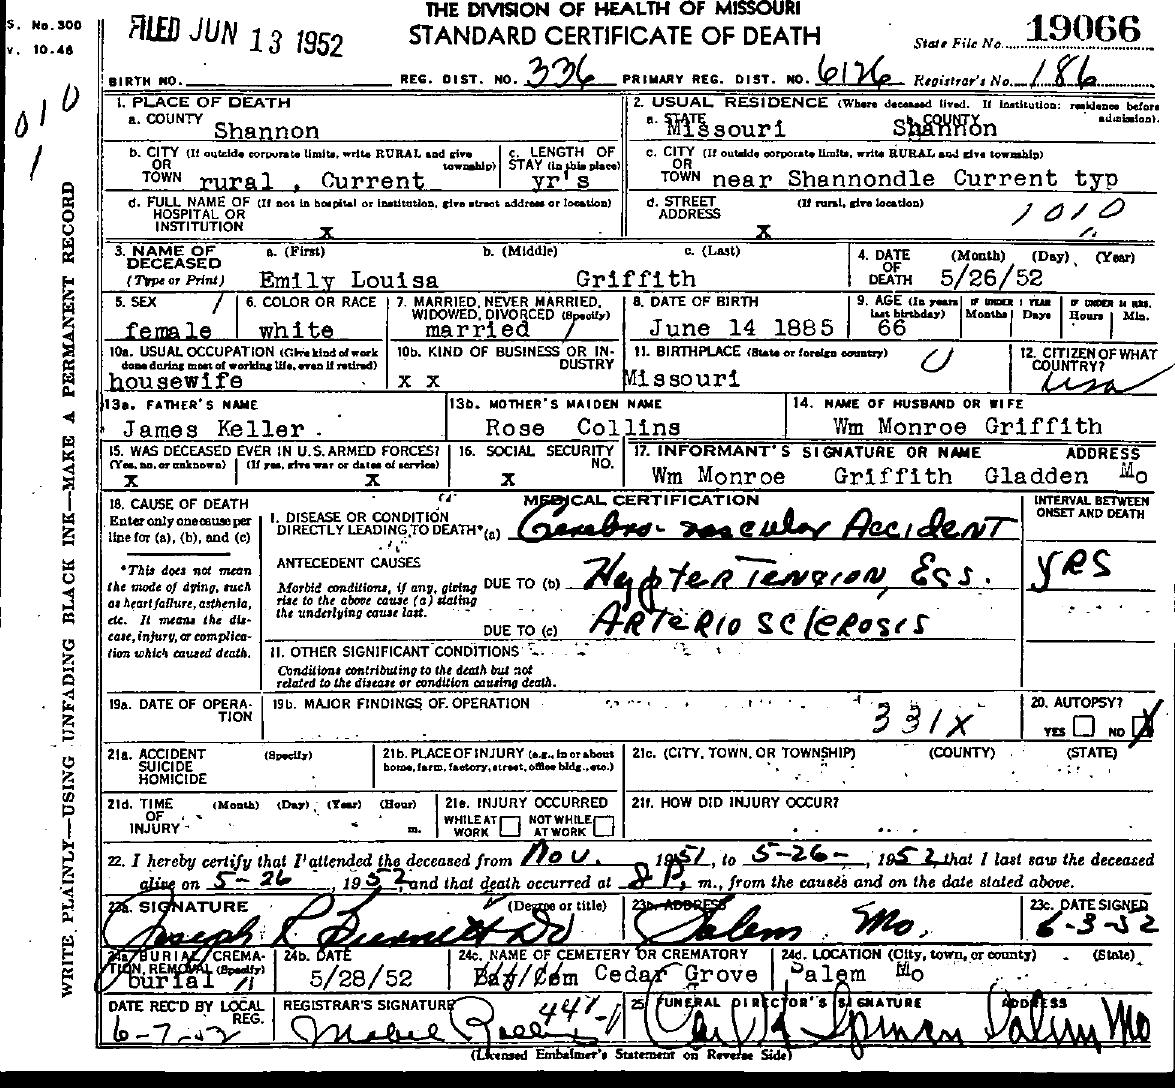 THE DIVISION OF HEALTH OF MISSOURI
STANDARD CERTIFICATE OF DEATH
S. No. 300
v. 10-46
FILED JUN 13 1952
State File No. 19066
BIRTH NO. REG. DIST. NO. 336 PRIMARY REG. DIST. NO. 6126 Registrar's No. 186
010
1
WRITE PLAINLY—USING UNFADING BLACK INK—MAKE A PERMANENT RECORD
1. PLACE OF DEATH
a. COUNTY
Shannon
2. USUAL RESIDENCE (Where deceased lived. If institution: residence before admission).
a. STATE b. COUNTY
Missouri Shannon
b. CITY (If outside corporate limits, write RURAL and give township)
OR
TOWN rural , Current
c. LENGTH OF
STAY (in this place)
yr's
c. CITY (If outside corporate limits, write RURAL and give township)
OR
TOWN near Shannondle Current typ
d. FULL NAME OF (If not in hospital or institution, give street address or location)
HOSPITAL OR
INSTITUTION X
d. STREET (If rural, give location)
ADDRESS X
1010
3. NAME OF DECEASED
(Type or Print)
a. (First) b. (Middle) c. (Last)
Emily Louisa Griffith
4. DATE OF DEATH (Month) (Day) (Year)
5/26/52
5. SEX
female
6. COLOR OR RACE
white
7. MARRIED, NEVER MARRIED,
WIDOWED, DIVORCED (Specify)
married
8. DATE OF BIRTH
June 14 1885
9. AGE (In years last birthday)
66
IF UNDER 1 YEAR
Months Days
IF UNDER 24 HRS.
Hours Min.
10a. USUAL OCCUPATION (Give kind of work
done during most of working life, even if retired)
housewife
10b. KIND OF BUSINESS OR INDUSTRY
X X
11. BIRTHPLACE (State or foreign country)
Missouri
12. CITIZEN OF WHAT
COUNTRY?
USA
13a. FATHER'S NAME
James Keller.
13b. MOTHER'S MAIDEN NAME
Rose Collins
14. NAME OF HUSBAND OR WIFE
Wm Monroe Griffith
15. WAS DECEASED EVER IN U.S. ARMED FORCES?
(Yes, no, or unknown) (If yes, give war or dates of service)
X X
16. SOCIAL SECURITY
NO.
X
17. INFORMANT'S SIGNATURE OR NAME ADDRESS
Wm Monroe Griffith Gladden Mo
18. CAUSE OF DEATH
Enter only one cause per
line for (a), (b), and (c)
*This does not mean
the mode of dying, such
as heart failure, asthenia,
etc. It means the dis-
ease, injury, or complica-
tion which caused death.
MEDICAL CERTIFICATION
INTERVAL BETWEEN
ONSET AND DEATH
I. DISEASE OR CONDITION
DIRECTLY LEADING TO DEATH*(a) Cerebro-vascular Accident
ANTECEDENT CAUSES
Morbid conditions, if any, giving
rise to the above cause (a) stating
the underlying cause last.
DUE TO (b) Hypertension, Ess. YRS
DUE TO (c) ARTERIO SCLEROSIS
II. OTHER SIGNIFICANT CONDITIONS
Conditions contributing to the death but not
related to the disease or condition causing death.
19a. DATE OF OPERATION
19b. MAJOR FINDINGS OF OPERATION
331X
20. AUTOPSY?
YES NO X
21a. ACCIDENT (Specify)
SUICIDE
HOMICIDE
21b. PLACE OF INJURY (e.g., in or about
home, farm, factory, street, office bldg., etc.)
21c. (CITY, TOWN, OR TOWNSHIP) (COUNTY) (STATE)
21d. TIME (Month) (Day) (Year) (Hour)
OF
INJURY m.
21e. INJURY OCCURRED
WHILE AT WORK NOT WHILE AT WORK
21f. HOW DID INJURY OCCUR?
22. I hereby certify that I attended the deceased from Nov. 1951, to 5-26-, 1952, that I last saw the deceased
alive on 5-26, 1952, and that death occurred at 8P. m., from the causes and on the date stated above.
23a. SIGNATURE (Degree or title)
Joseph L Burnett DO
23b. ADDRESS
Salem Mo.
23c. DATE SIGNED
6-3-52
24a. BURIAL, CREMATION, REMOVAL (Specify)
burial
24b. DATE
5/28/52
24c. NAME OF CEMETERY OR CREMATORY
Cedar Grove
24d. LOCATION (City, town, or county) (State)
Salem Mo
DATE REC'D BY LOCAL
REG.
6-7-52
REGISTRAR'S SIGNATURE
Mabel
441-1
25. FUNERAL DIRECTOR'S SIGNATURE ADDRESS
Salem Mo
(Licensed Embalmer's Statement on Reverse Side)